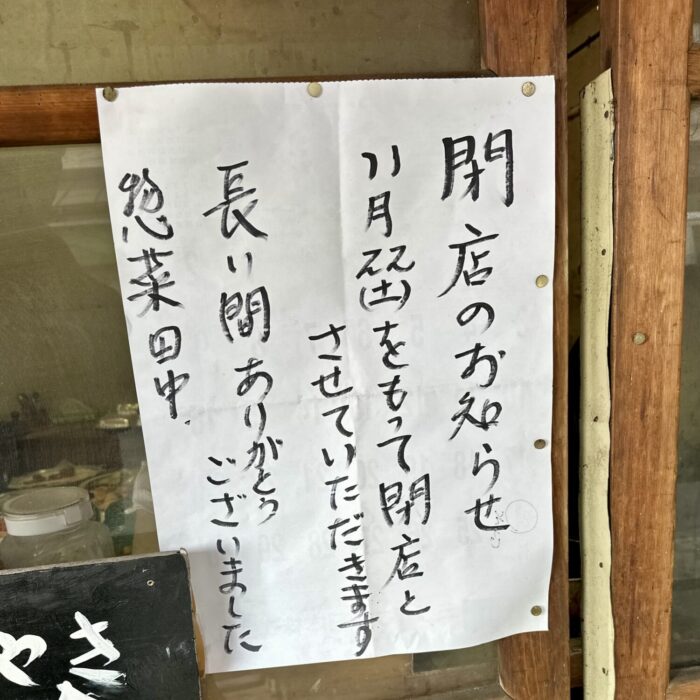 閉店のお知らせ
11月22(土)をもって閉店と
させていただきます
長い間ありがとう
ございました
惣菜田中
さ
や